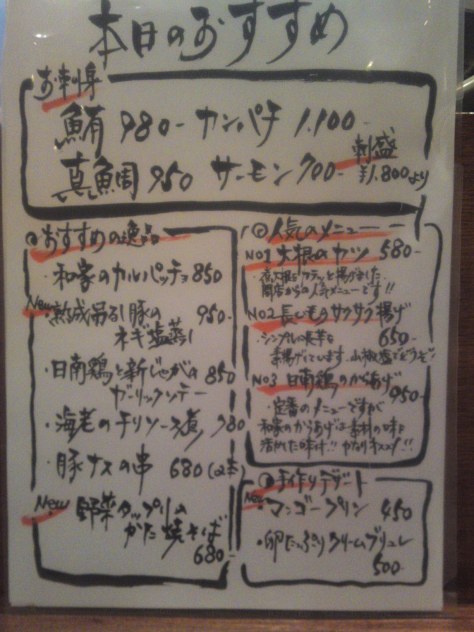 本日のおすすめ
お刺身
鮪 980- カンパチ 1,100-
真鯛 950 サーモン 700-
刺盛
¥1,800より
おすすめの逸品
・和家のカルパッチョ 850
New
・熟成吊るし豚の 950-
ネギ塩蒸し
・日南鶏と新じゃがの 850
ガーリックソテー
・海老のチリソース煮 980
・豚ナスの串 680 (2本)
New
・野菜タップリの
かた焼きそば
680-
人気のメニュー
NO1 大根のカツ 580-
・大根をカラッと揚げました
開店からの人気メニューです!!
NO2 長いものサクサク揚げ
650-
・シンプルに長芋を
素揚げしています。山椒塩でどうぞ!
NO3 日南鶏のからあげ
950-
・定番のメニューですが
和家のからあげは素材の味を
活かした味付!! かなりオススメ!!
手作りデザート
New
・マンゴープリン 450
・卵たっぷりクリームブリュレ
500-